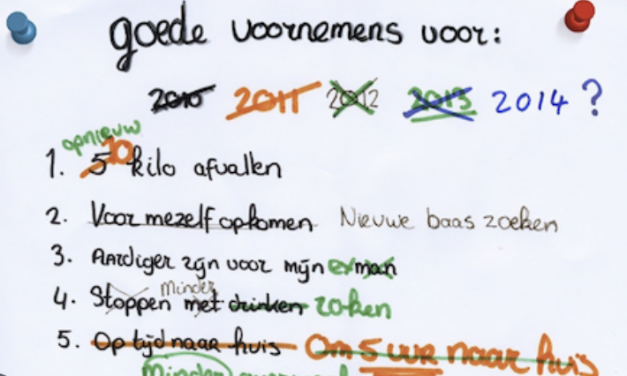 goede voornemens voor:
2010 2011 2012 2013 2014 ?
opnieuw
1. 5 10 kilo afvallen
2. Voor mezelf opkomen Nieuwe baas zoeken
3. Aardiger zijn voor mijn ex man
Minder
4. Stoppen met drinken roken
5. Op tijd naar huis Om 5 uur naar huis
Minder